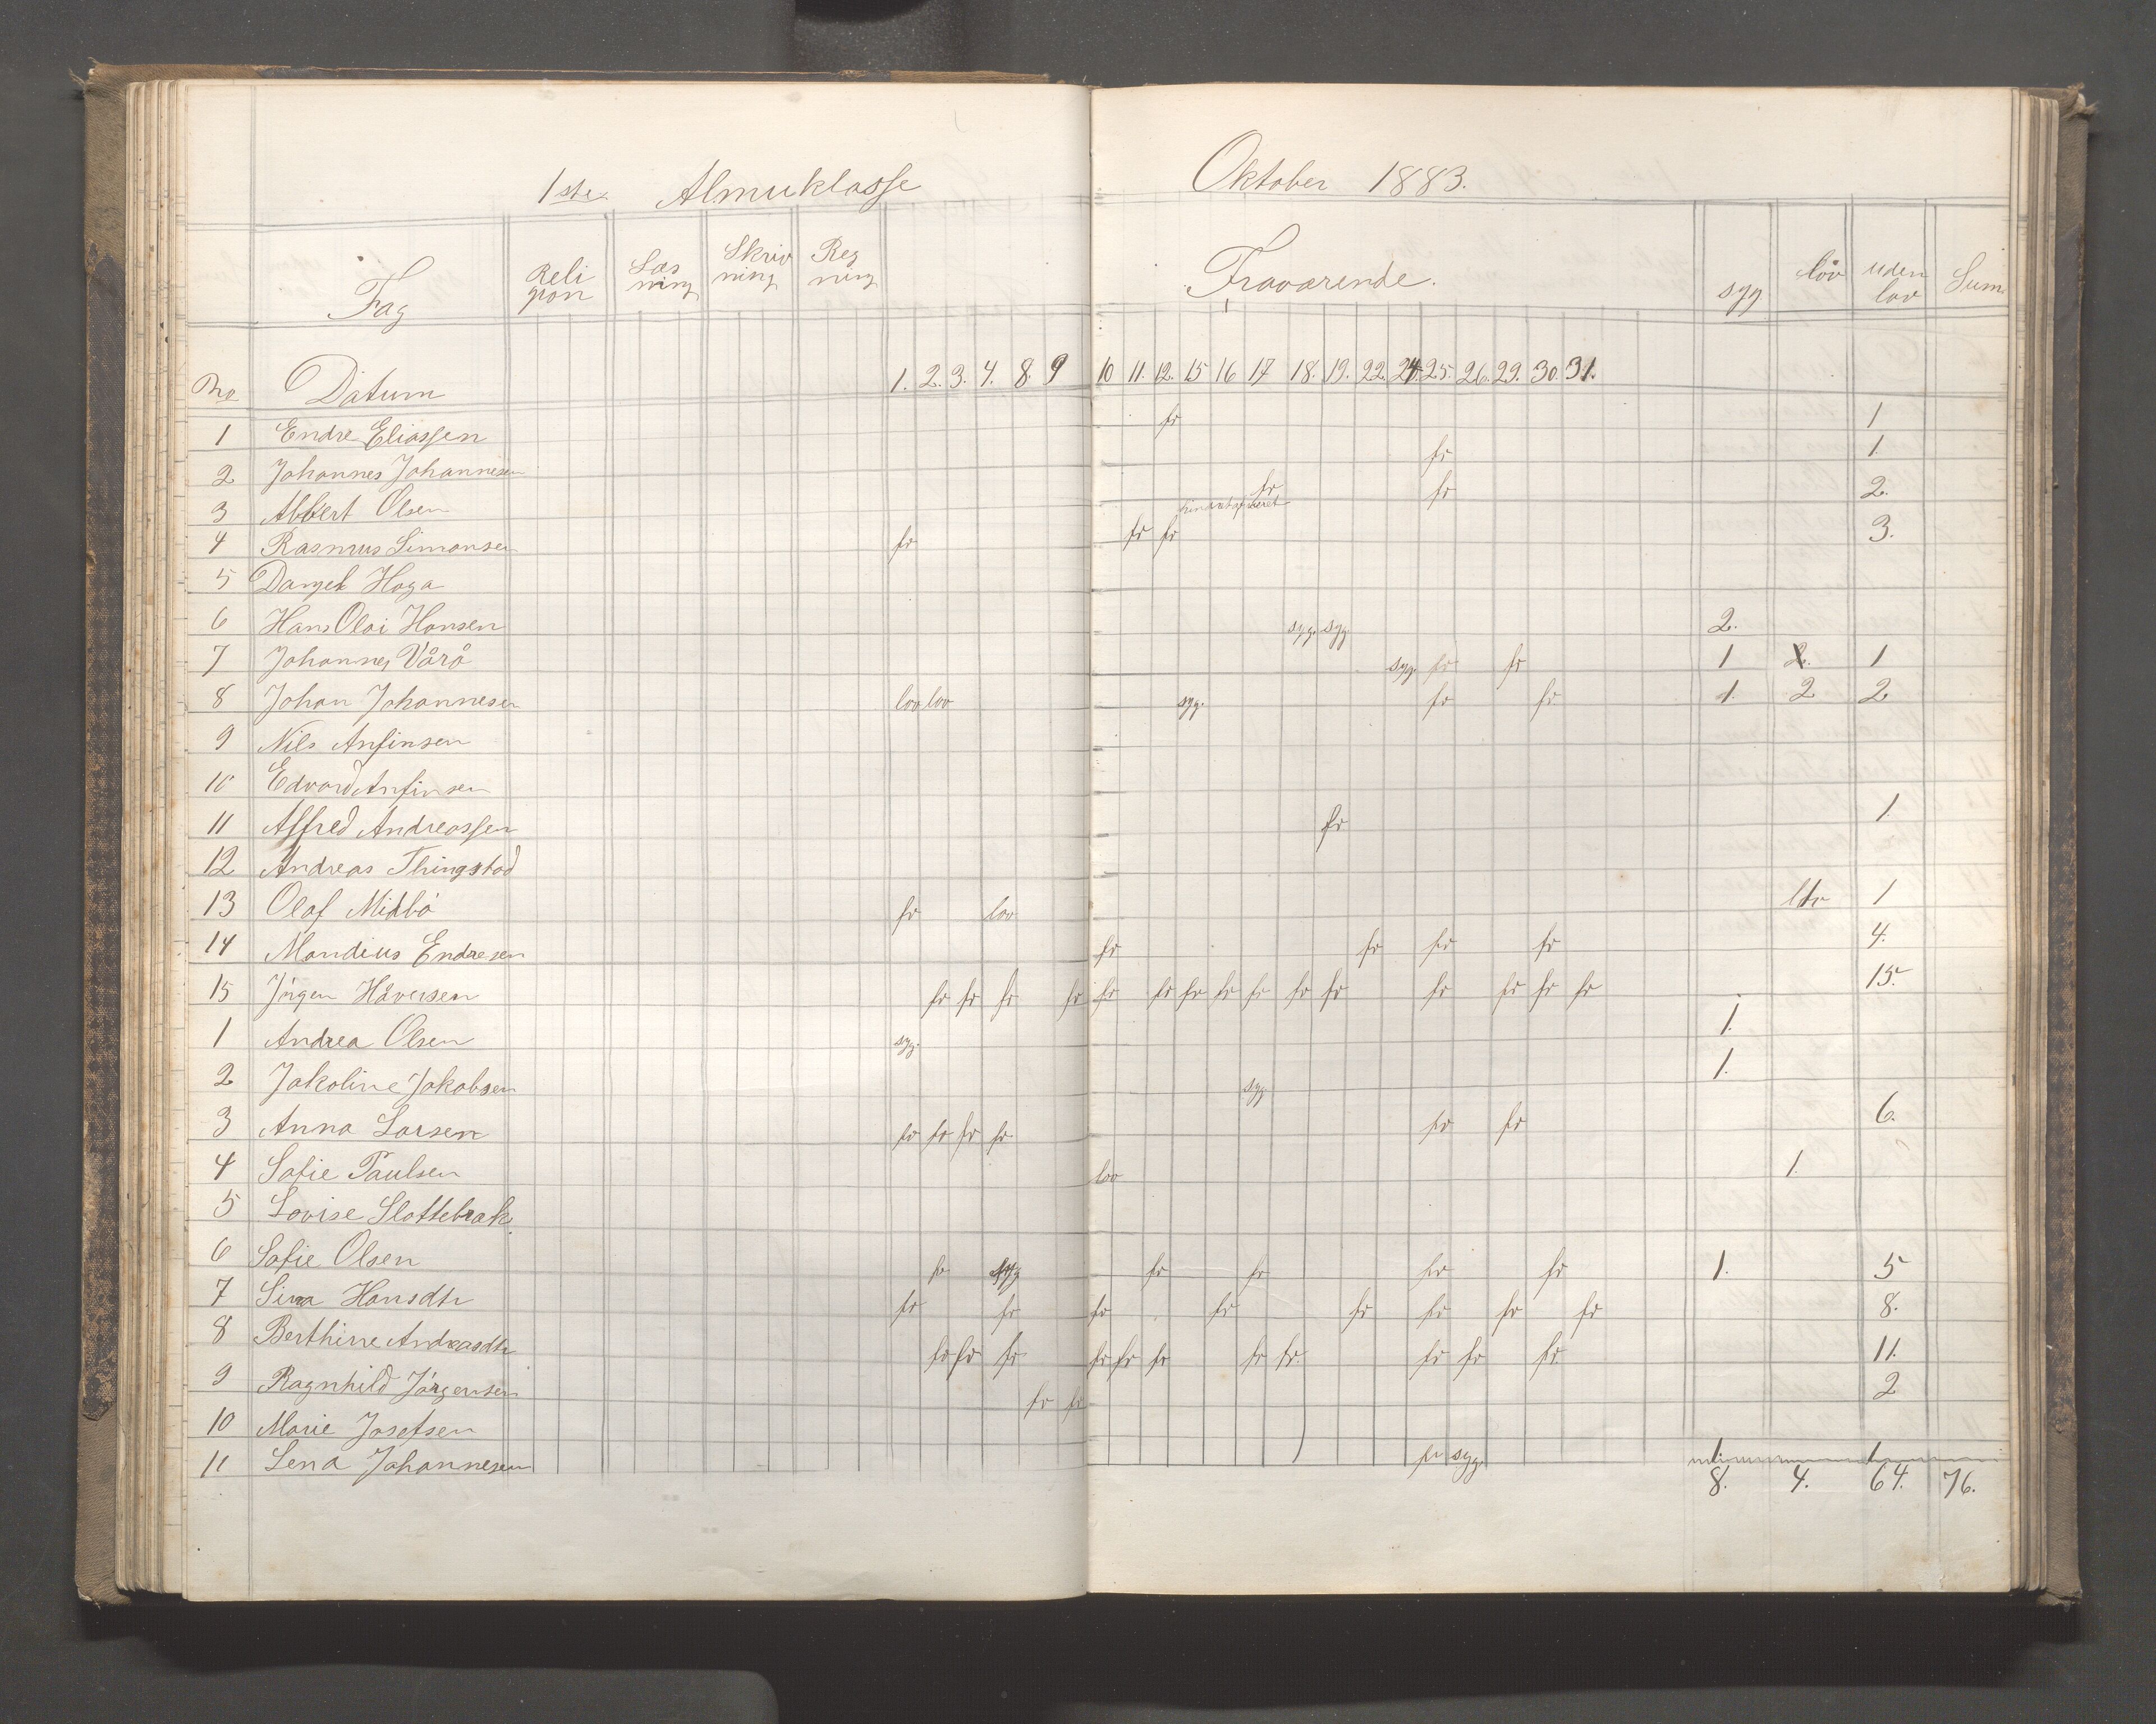 1ste. Almuklasse Oktober 1883.
Fag Religion Læsning Skrivning Regning Fraværende. syg lov uden lov Sum
No Datum 1. 2. 3. 4. 8. 9 10 11. 12. 15 16 17 18. 19. 22. 24. 25. 26. 29. 30. 31.
1 Endre Eliassen fr 1
2 Johannes Johannesen fr 1.
3 Albert Olsen fr fr 2.
4 Rasmus Simonsen fr fr fr 3.
5 Danjel Haga
6 Hans Olai Hansen syg. syg. 2.
7 Johannes Vårå syg. fr fr 1 2. 1
8 Johan Johannesen lov lov syg. fr fr 1. 2 2
9 Nils Anfinsen
10 Edvard Anfinsen
11 Alfred Andreassen fr 1.
12 Andreas Thingstad
13 Olaf Midbö fr lov 1
14 Mandius Endresen fr fr fr fr 4.
15 Jörgen Håversen fr fr fr fr fr fr fr fr fr fr fr fr fr fr fr 15.
1 Andrea Olsen syg. 1.
2 Jakoline Jakobsen syg 1.
3 Anna Larsen fr fr fr fr fr fr 6.
4 Sofie Paulsen lov 1.
5 Lovise Slottebrak.
6 Sofie Olsen fr syg fr fr fr fr 1. 5
7 Sina Hansdtr fr fr fr fr fr fr fr fr 8.
8 Berthine Andreasdtr fr fr fr fr fr fr fr fr. fr fr fr. 11.
9 Ragnhild Jörgensen fr fr 2
10 Marie Josefsen
11 Lena Johannesen fr syg. 1. 1
8. 4. 64. 76.